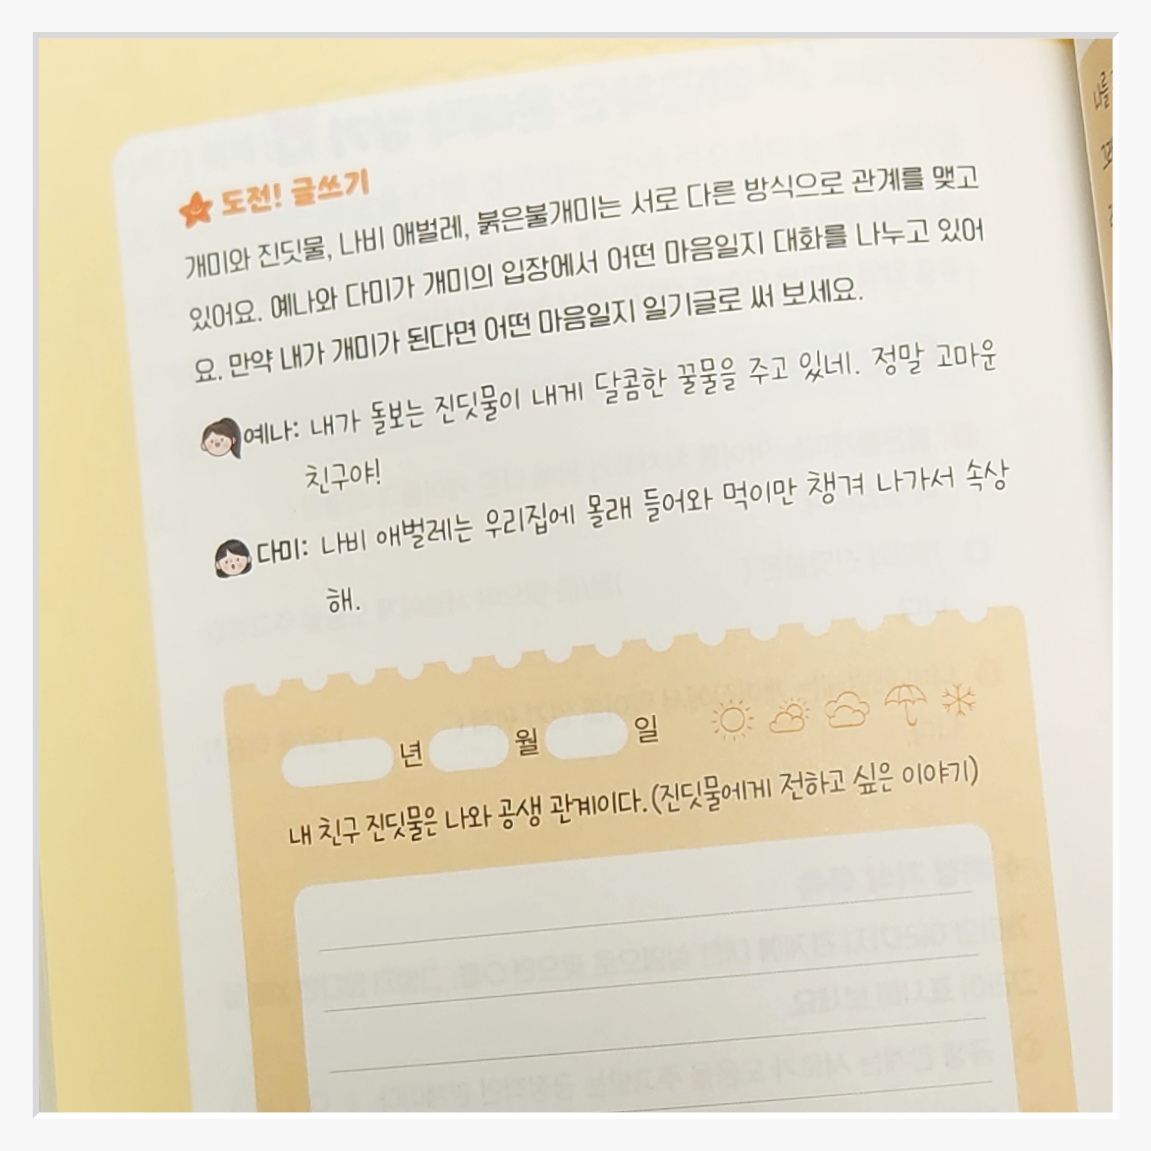 도전! 글쓰기
개미와 진딧물, 나비 애벌레, 붉은불개미는 서로 다른 방식으로 관계를 맺고
있어요. 예나와 다미가 개미의 입장에서 어떤 마음일지 대화를 나누고 있어
요. 만약 내가 개미가 된다면 어떤 마음일지 일기글로 써 보세요.
예나: 내가 돌보는 진딧물이 내게 달콤한 꿀물을 주고 있네. 정말 고마운
친구야!
다미: 나비 애벌레는 우리집에 몰래 들어와 먹이만 챙겨 나가서 속상
해.
년 월 일
내 친구 진딧물은 나와 공생 관계이다.(진딧물에게 전하고 싶은 이야기)